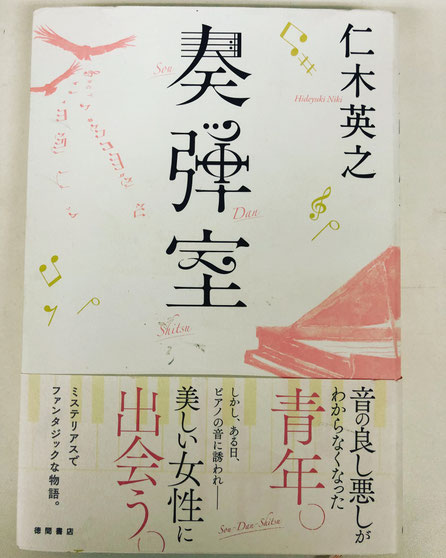 仁木英之
Hideyuki Niki
奏弾室
Son
Dan
Shitsu
音の良し悪しが
わからなくなった
青年。
しかし、ある日、
ピアノの音に誘われ——
美しい女性に
出会う。
Son-Dan-Shitsu
ミステリアスで
ファンタジックな物語。
徳間書店